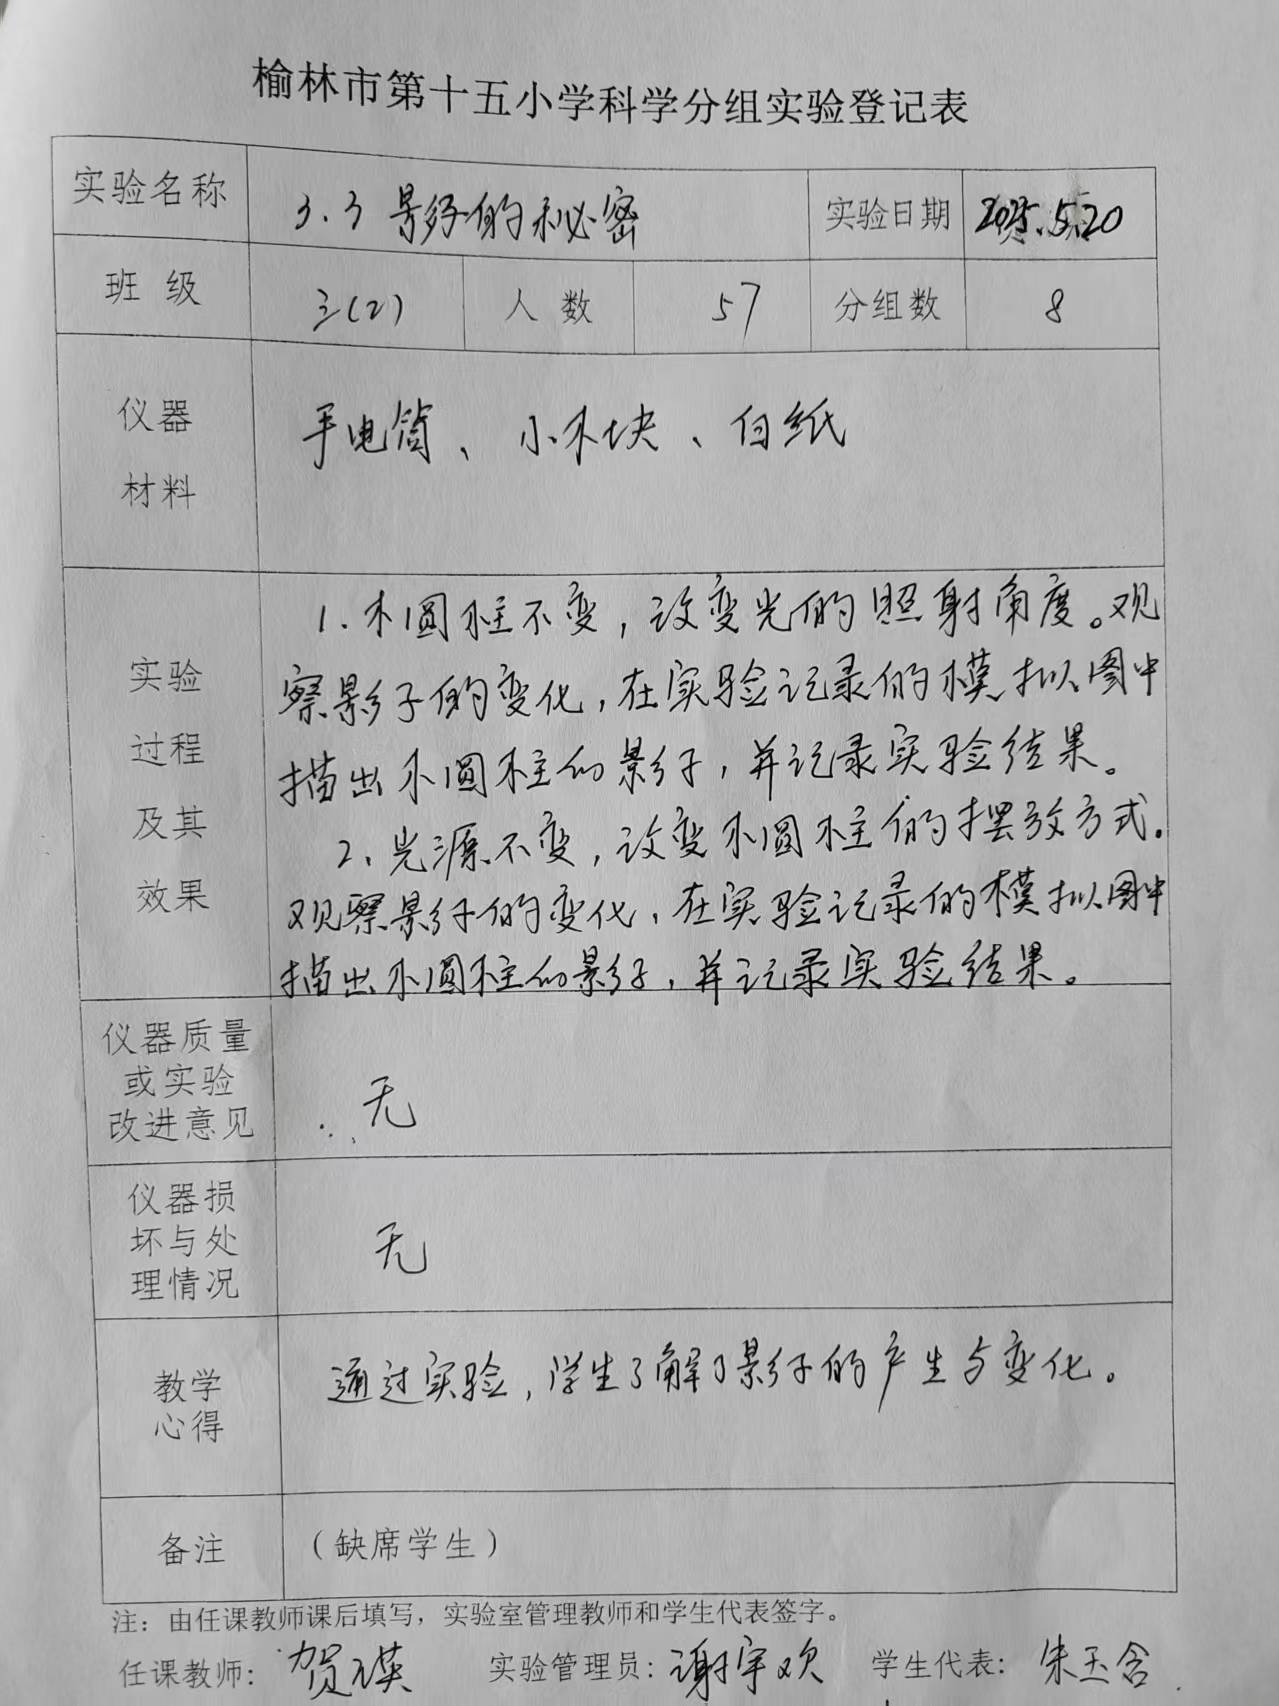 榆林市第十五小学科学分组实验登记表
实验名称 3.3 影子的秘密 实验日期 2025.5.20
班级 三(2) 人数 57 分组数 8
仪器
材料
手电筒、小木块、白纸
实验
过程
及其
效果
1.木圆柱不变，改变光的照射角度。观
察影子的变化，在实验记录的模拟图中
描出木圆柱的影子，并记录实验结果。
2、光源不变，改变木圆柱的摆放方式。
观察影子的变化，在实验记录的模拟图中
描出木圆柱的影子，并记录实验结果。
仪器质量
或实验
改进意见
无
仪器损
坏与处
理情况
无
教学
心得
通过实验，学生了解了影子的产生与变化。
备注 （缺席学生）
注：由任课教师课后填写，实验室管理教师和学生代表签字。
任课教师：贺瑛 实验管理员：谢宇欢 学生代表：朱玉含